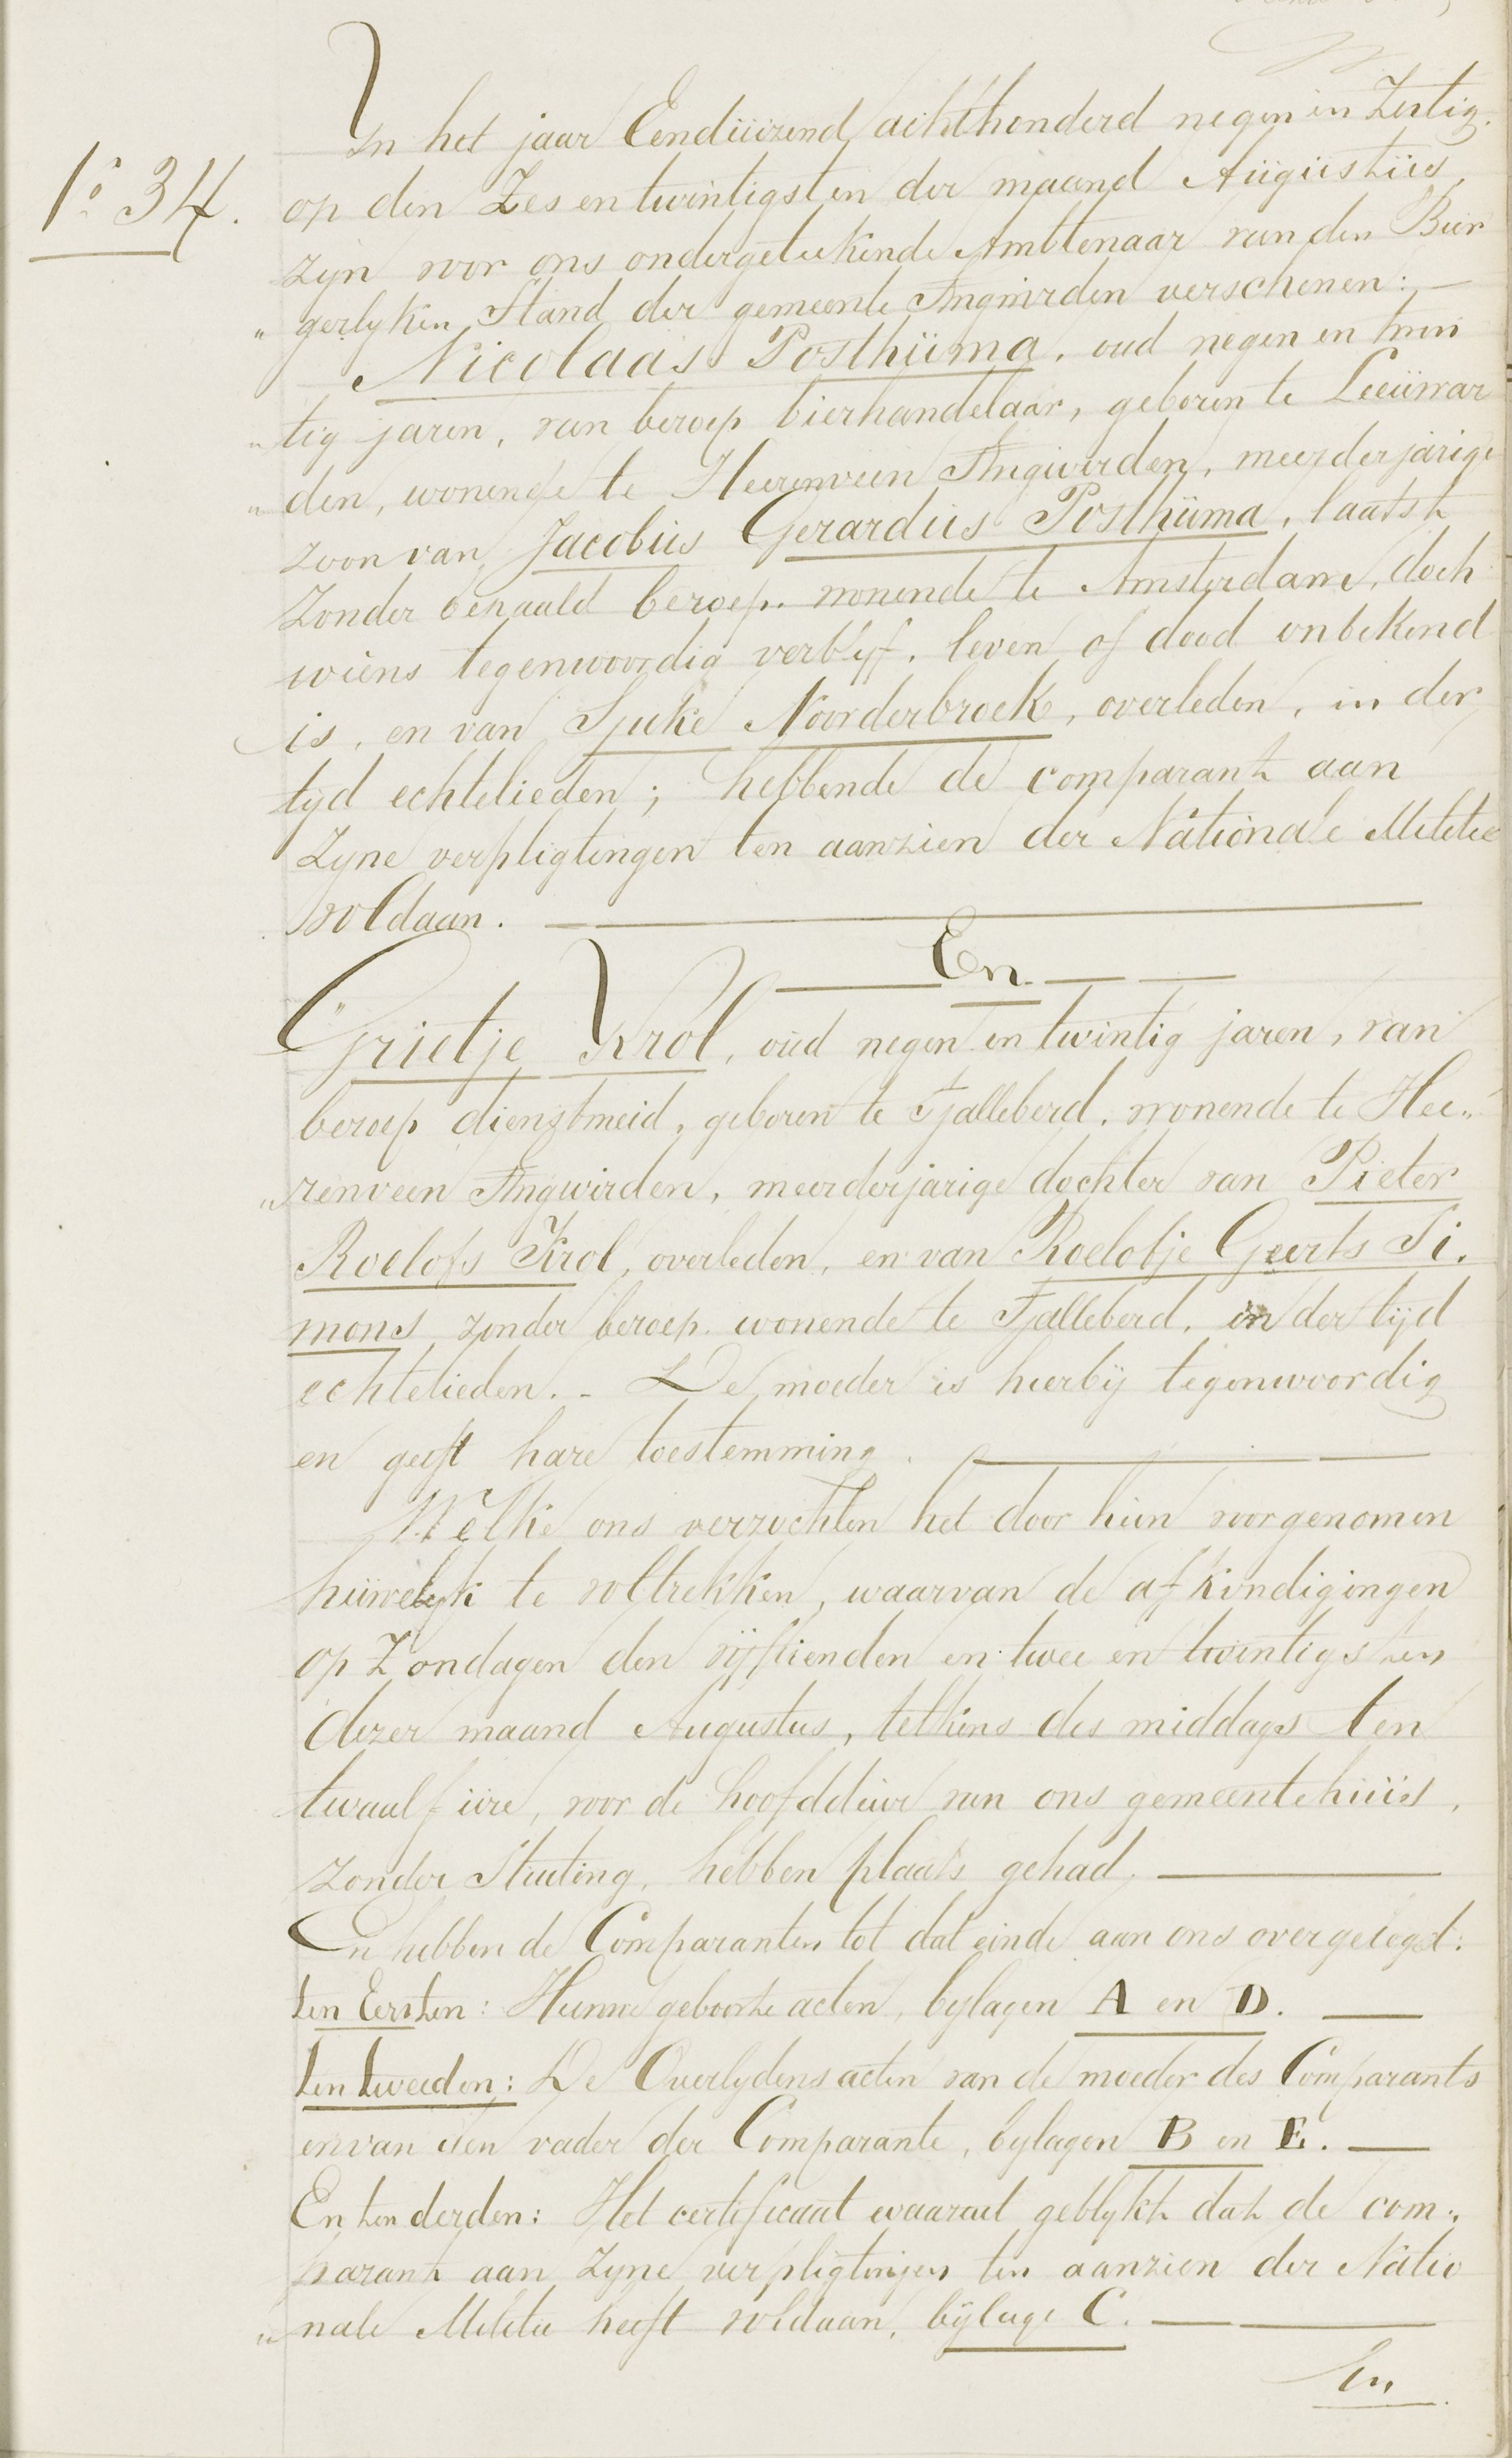 In het jaar Eenduizend achthonderd negen en Zestig.
No 34.
op den Zes en twintigsten der maand Augustus
zyn voor ons ondergeteekende Ambtenaar van den Bur
"gerlyken Stand der gemeente Ængwirden verschenen: —
Nicolaas Posthuma, oud negen en twin
"tig jaren, van beroep bierhandelaar, geboren te Leeuwar
"den, wonende te Heerenveen Ængwirden, meerderjarige
zoon van Jacobus Gerardus Posthuma, laatst
zonder bepaald beroep. wonende te Amsterdam, doch
wiens tegenwoordig verblyf, leven of dood onbekend
is, en van Sjuke Noorderbroek, overleden, in der
tyd echtelieden; hebbende de comparant aan
zyne verpligtingen ten aanzien der Nationale Militie
voldaan. —
En. —
Grietje Krol, oud negen en twintig jaren, van
beroep dienstmeid, geboren te Tjalleberd, wonende te Hee"
"renveen Ængwirden, meerderjarige dochter van Pieter
Roelofs Krol, overleden, en van Roelofje Geerts Si.
mons zonder beroep. wonende te Tjalleberd, in der tijd
echtelieden. - De moeder is hierbij tegenwoordig
en geeft hare toestemming. —
Welke ons verzochten het door hun voorgenomen
huwelyk te voltrekken, waarvan de afkondigingen
op Zondagen den vijftienden en twee en twintigsten
dezer maand Augustus, telkens des middags ten
twaalf ure, voor de hoofddeur van ons gemeentehuis,
zonder Stuiting, hebben plaats gehad. —
En hebben de Comparanten tot dat einde aan ons overgelegd:
ten Eersten: Hunne geboorte acten, bylagen A en D. —
ten tweeden: De Overlydens acten van de moeder des Comparants
en van den vader der Comparante, bylagen B en E. —
En ten derden: Het certificaat waaruit geblykt dat de com"
parant aan zyne verpligtingen ten aanzien der Natio
"nale Militie heeft voldaan, bijlage C. —
En